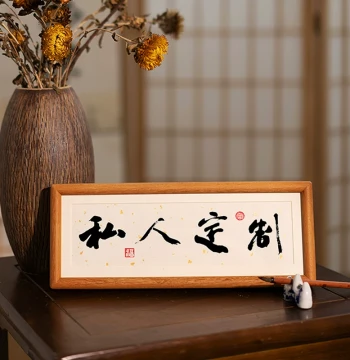 私人定制